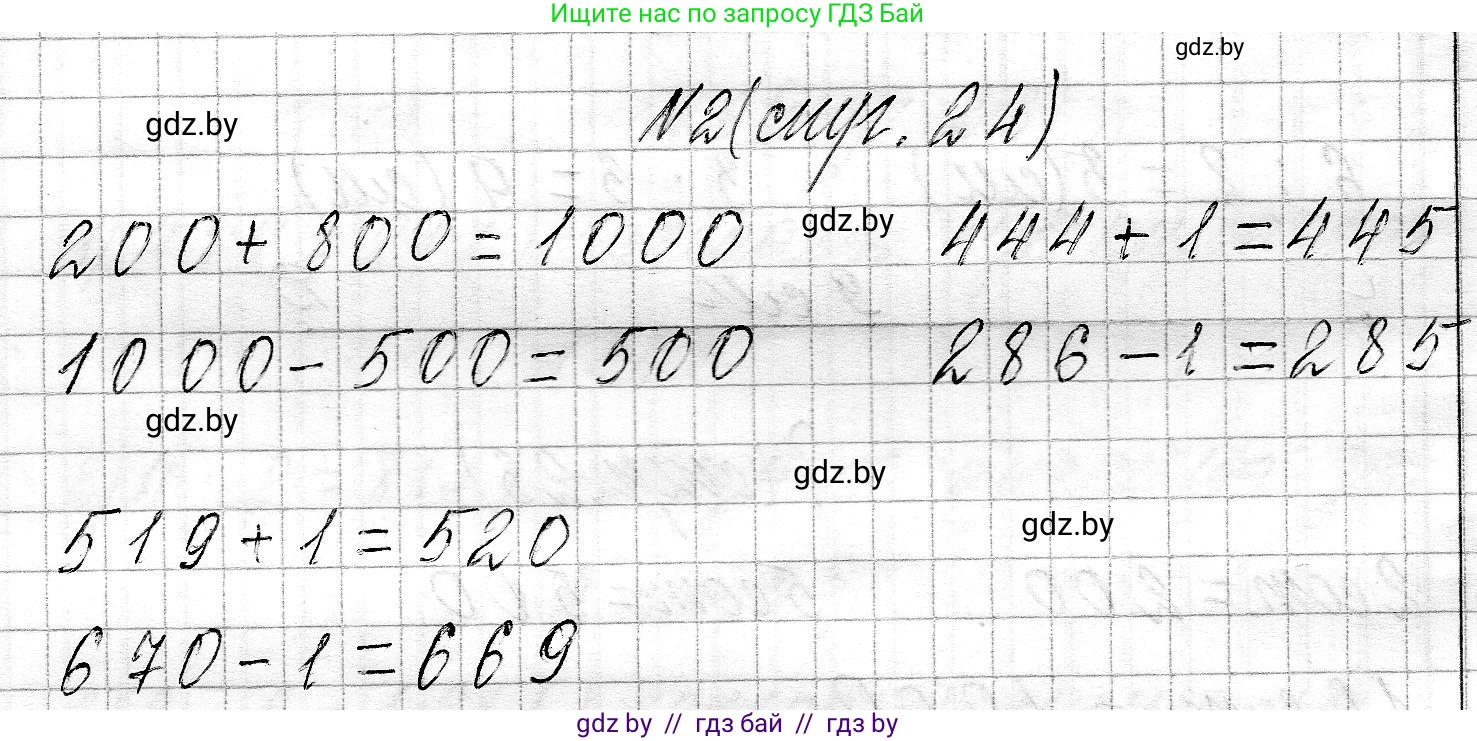 Ищите нас по запросу ГДЗ Бай
gdz.by
gdz.by
№2(стр. 24)
200+800=1000 gdz.by 444+1=445
1000-500=500 286-1=285
gdz.by
gdz.by
519+1=520 gdz.by
670-1=669
gdz.by // гдз бай // гдз by